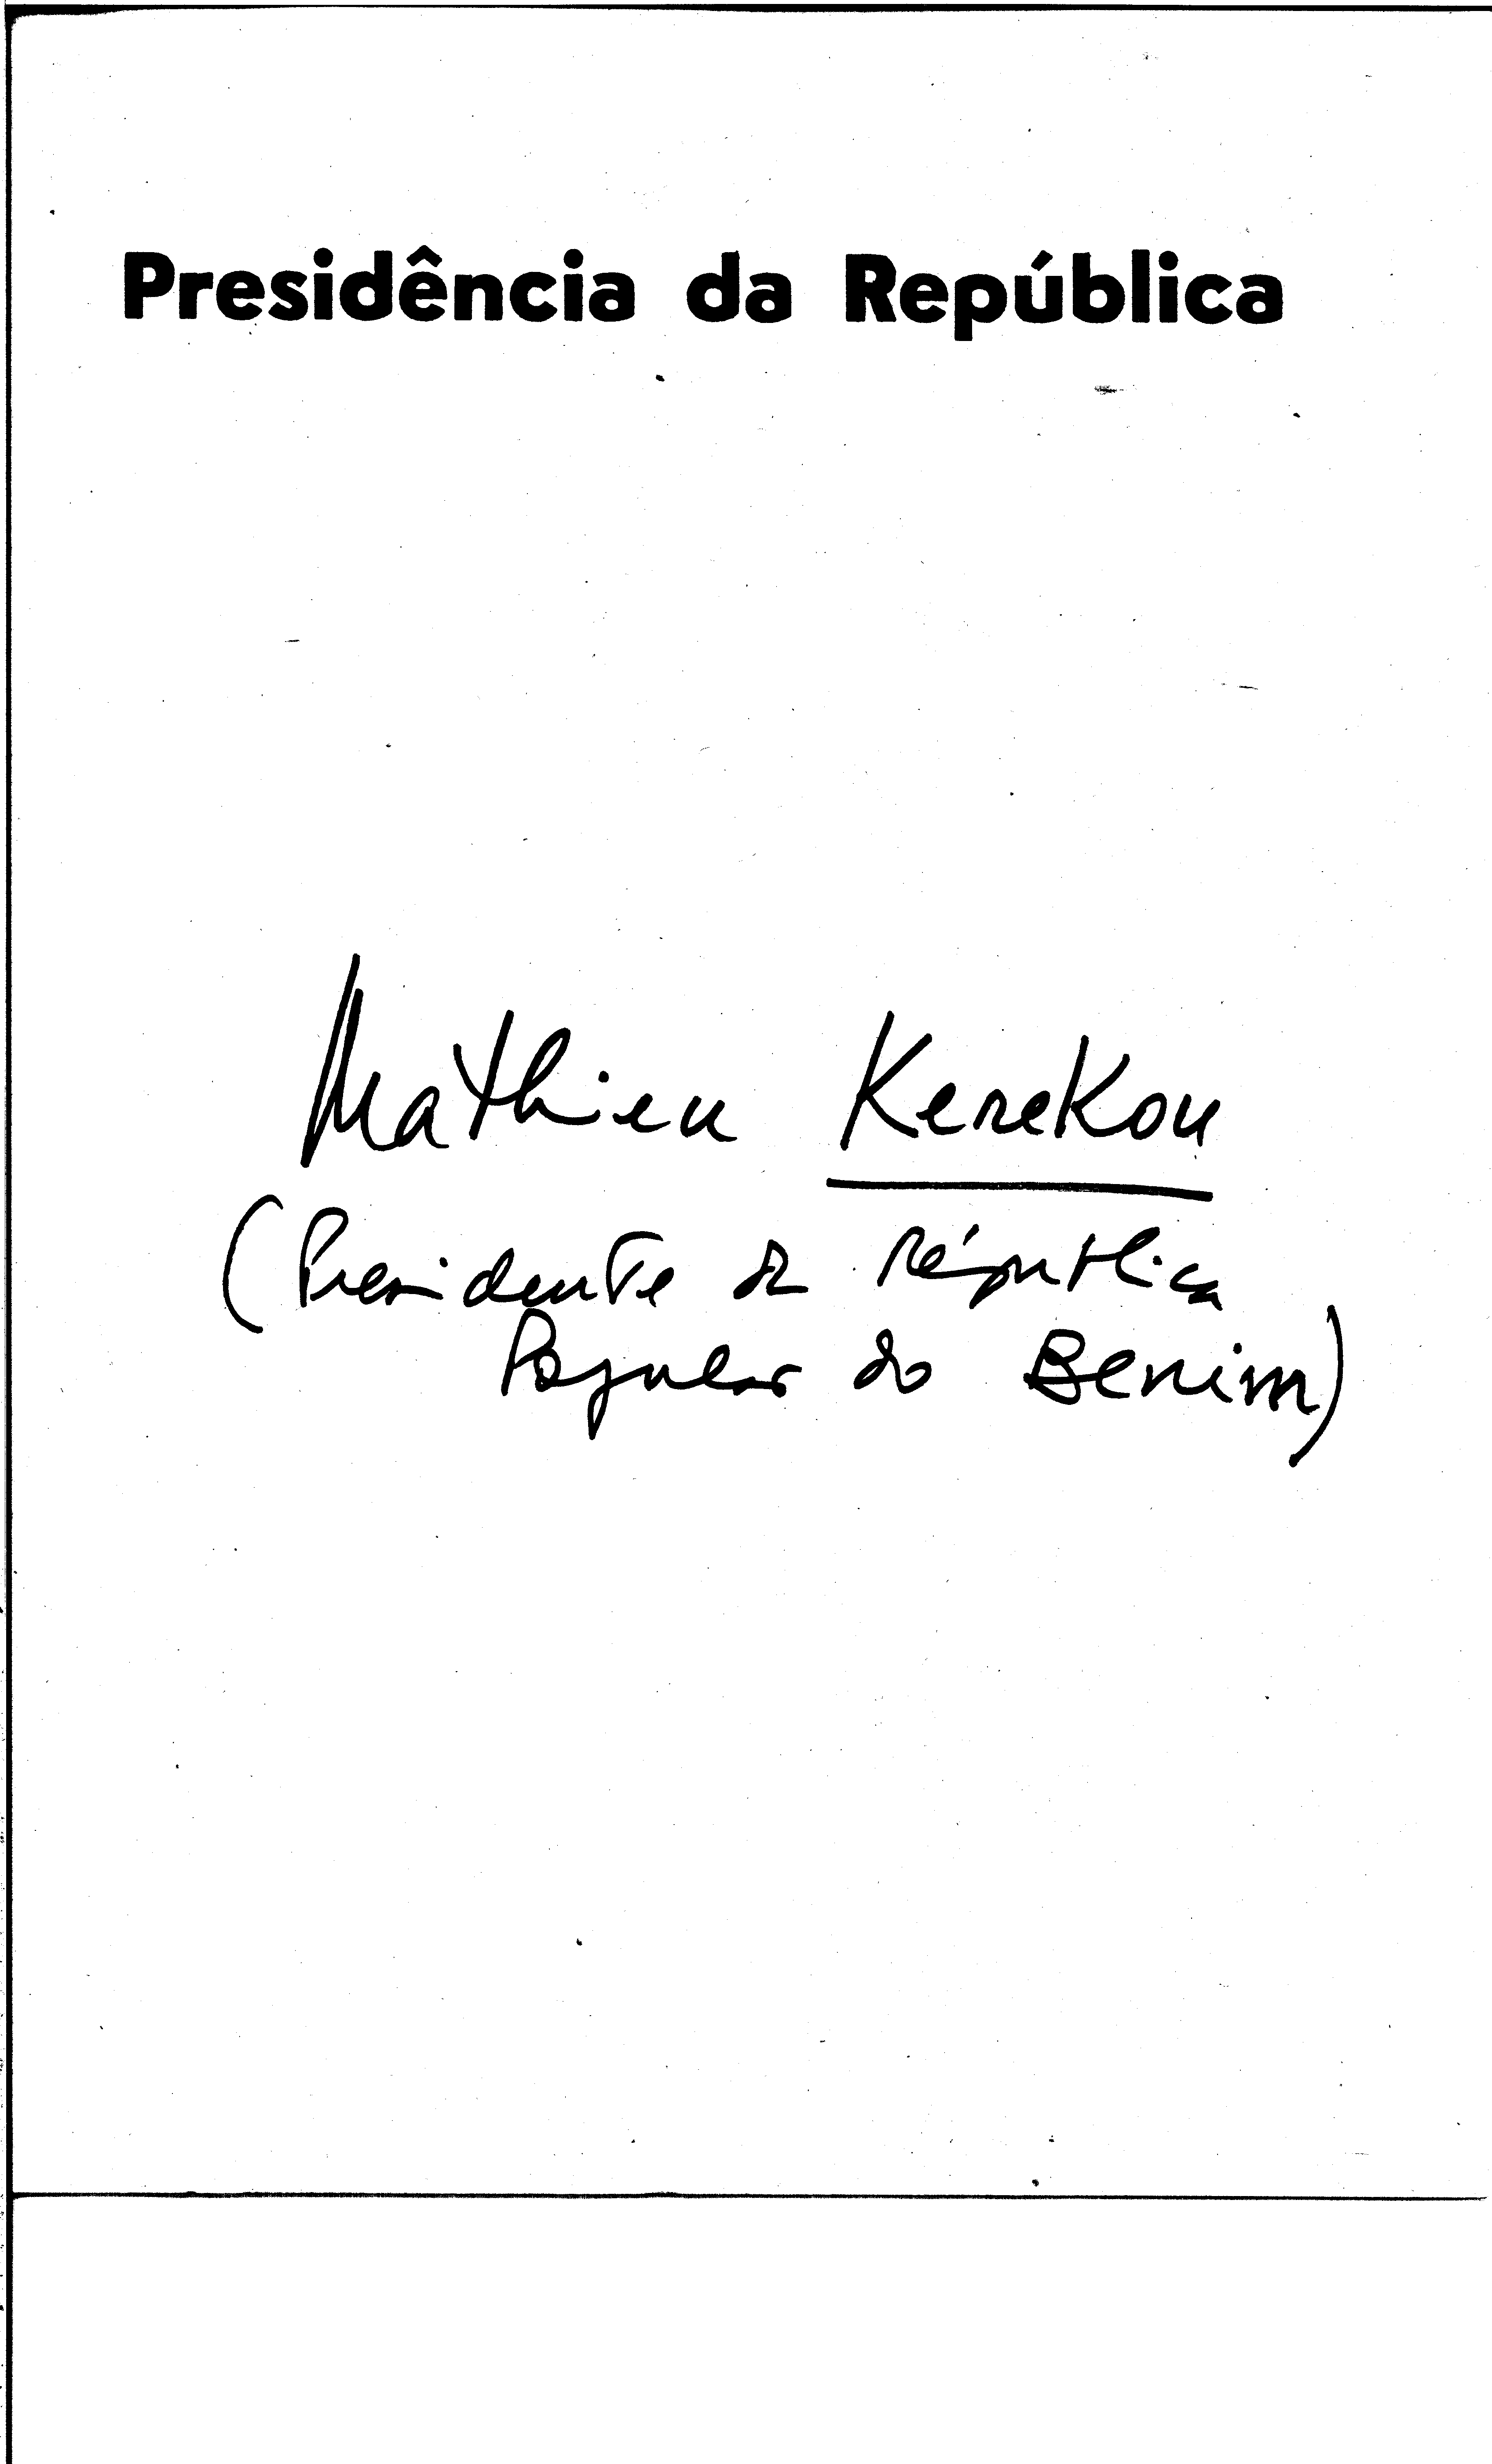 Presidência da República
Mathieu Kerekou
(Presidente da República
Popular do Benim)